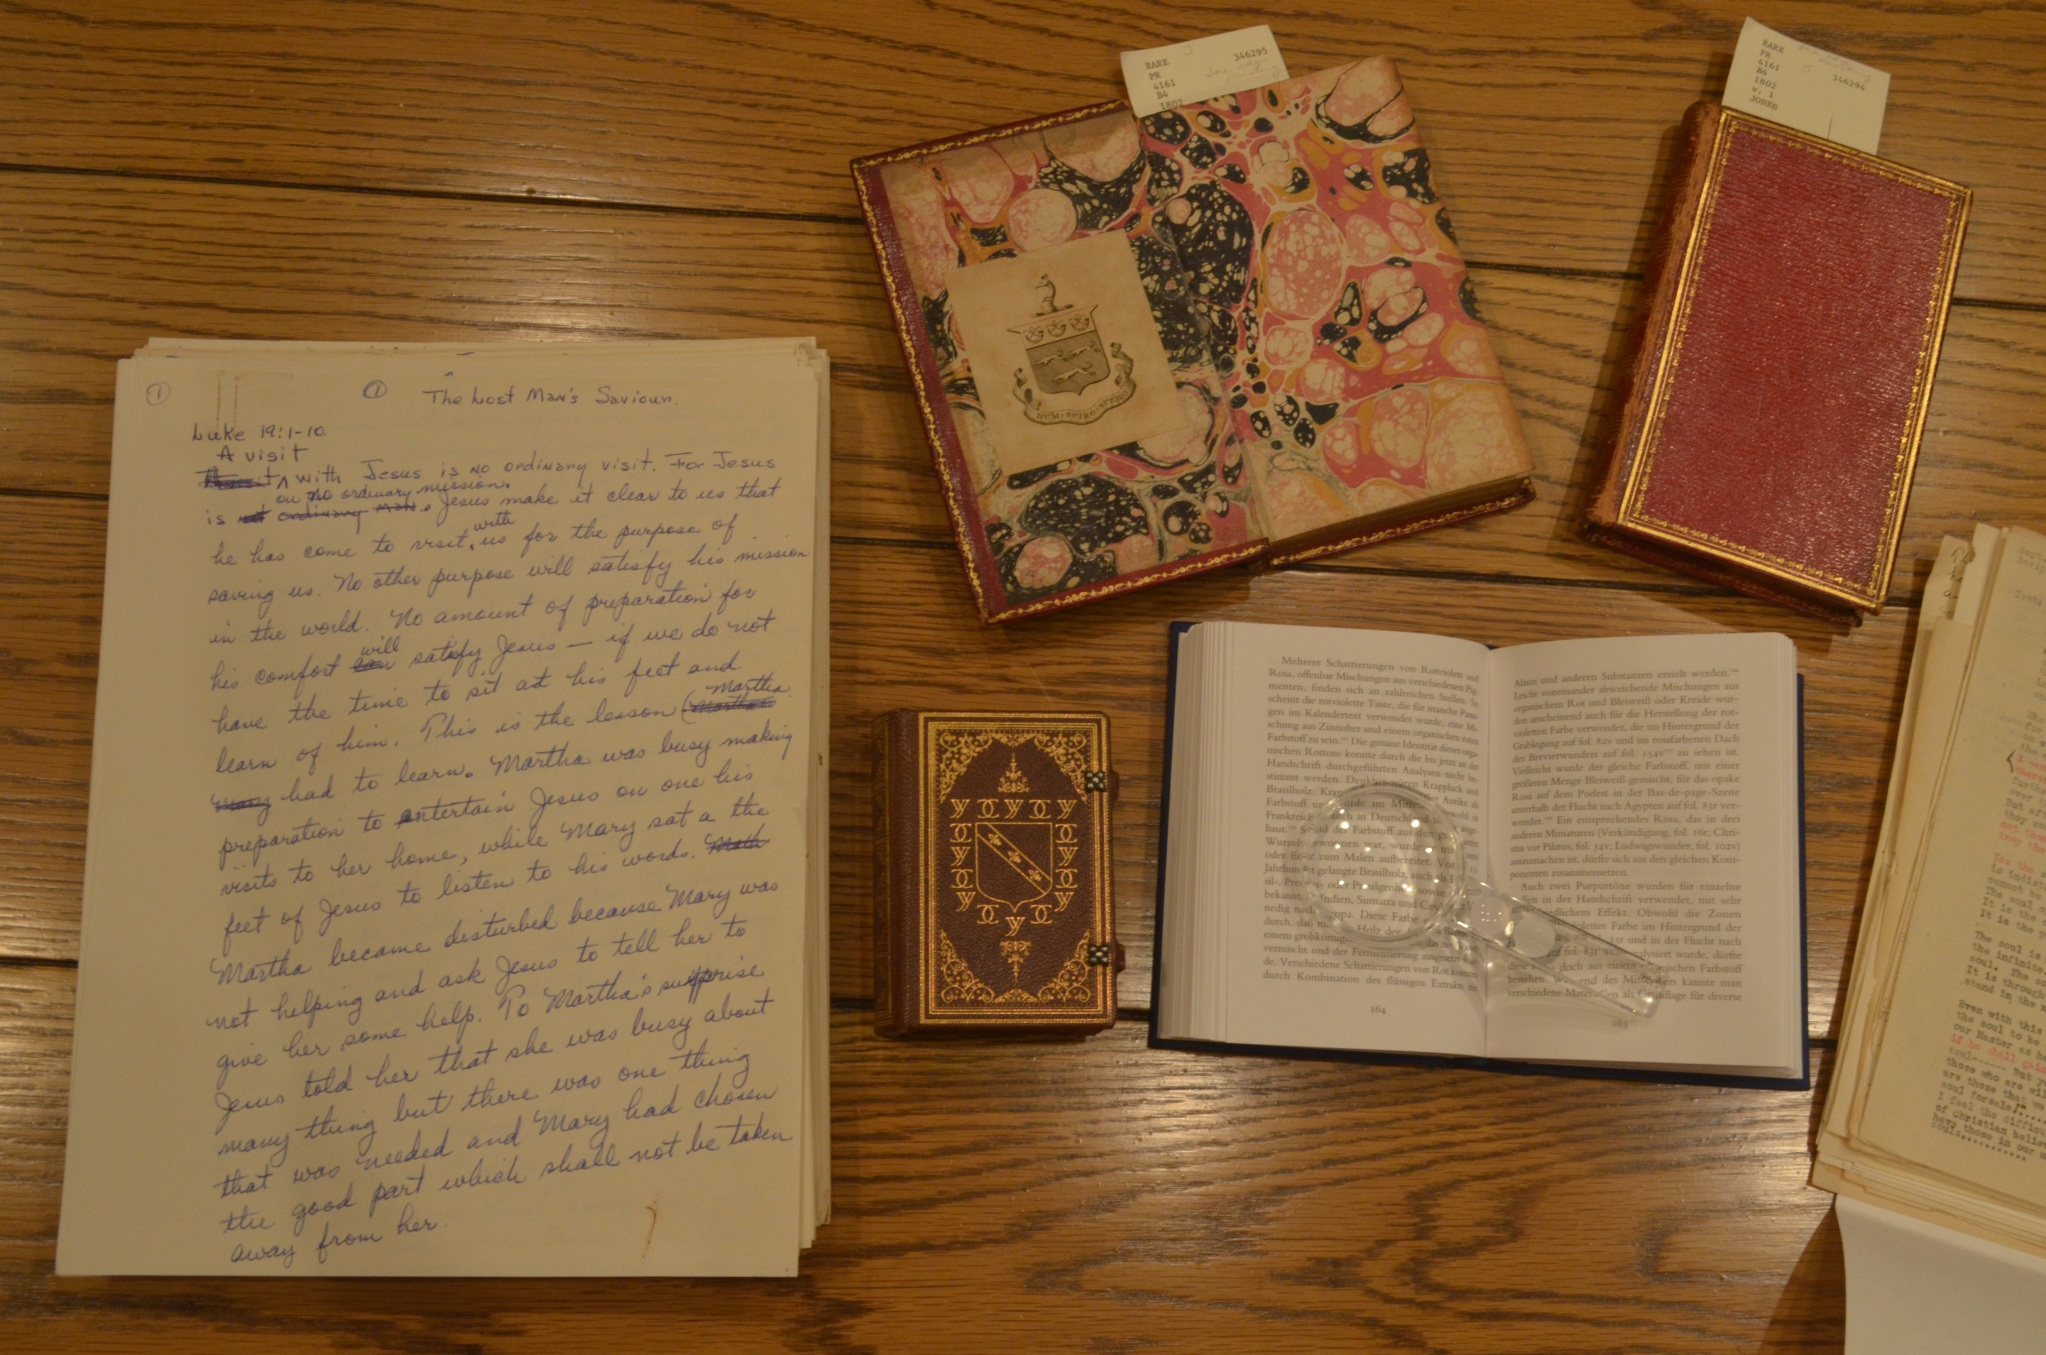 1 1 The Lost Man's Saviour.
Luke 19:1-10
A visit
with Jesus is no ordinary visit. For Jesus
on no ordinary mission.
is not ordinary man. Jesus make it clear to us that
with
he has come to visit, us for the purpose of
saving us. No other purpose will satisfy his mission
in the world. No amount of preparation for
will
his comfort can satisfy Jesus — if we do not
have the time to sit at his feet and
Martha
learn of him. This is the lesson (Martha
Mary had to learn. Martha was busy making
preparation to entertain Jesus on one his
visits to her home, while Mary sat a the
feet of Jesus to listen to his words. Math
Martha became disturbed because Mary was
not helping and ask Jesus to tell her to
give her some help. To Martha's surprise
Jesus told her that she was busy about
many thing but there was one thing
that was needed and Mary had chosen
the good part which shall not be taken
away from her.
J
RARE 346295
PR
4161
B4
1802
fore edge
painting
DUM · SPIRO · SPERO
RARE
PR
4161 J 346294
B4
1802
v. 1
JONES
Mehrere Schattierungen von Rotviolett und
Rosa, offenbar Mischungen aus verschiedenen Pig-
menten, finden sich an zahlreichen Stellen. So
scheint die rotviolette Tinte, die für manche Passa-
gen im Kalendertext verwendet wurde, eine Mi-
schung aus Zinnober und einem organischen roten
Farbstoff zu sein. Die genaue Identität dieses orga-
nischen Rottons konnte durch die bis jetzt an der
Handschrift durchgeführten Analysen nicht be-
stimmt werden. Denkbar Krapplack und
Brasilholz. Krapp Antike als
Farbstoff wurde im Mittel
Frankreich auch in Deutschland
baut. der Farbstoff aus den
Wurzel gewonnen war, wurde
oder zum Malen aufbereitet. Vor
Jahrhundert gelangte Brasilholz, auch als
sil-, oder Persilgenholz sowie
bekannt, Indien, Sumatra und Ceylon
nedig nach Europa. Diese Farbe
durch, daß Holz der
einem grobkörnigen
vermischt und der Fermentierung ausgesetzt
de. Verschiedene Schattierungen von Rot konnten
durch Kombination des flüssigen Extrakts mit
164
Alaun und anderen Substanzen erzielt werden.
Leicht voneinander abweichende Mischungen aus
organischem Rot und Bleiweiß oder Kreide wur-
den anscheinend auch für die Herstellung der rot-
violetten Farbe verwendet, die im Hintergrund der
Grablegung auf fol. 82v und im rosafarbenen Dach
des Brevierwunders auf fol. 154v zu sehen ist.
Vielleicht wurde der gleiche Farbstoff, mit einer
größeren Menge Bleiweiß gemischt, für das opake
Rosa auf dem Podest in der Bas-de-page-Szene
unterhalb der Flucht nach Ägypten auf fol. 83r ver-
wendet. Ein entsprechendes Rosa, das in drei
anderen Miniaturen (Verkündigung, fol. 16r; Chri-
stus vor Pilatus, fol. 34v; Ludwigswunder, fol. 102v)
auszumachen ist, dürfte sich aus den gleichen Kom-
ponenten zusammensetzen.
Auch zwei Purpurtöne wurden für einzelne
Stellen in der Handschrift verwendet, mit sehr
unterschiedlichem Effekt. Obwohl die Zonen
violetter Farbe im Hintergrund der
auf fol. 15r und in der Flucht nach
auf fol. 83r analysiert wurde, dürfte
diese doch aus einem organischen Farbstoff
bestehen. Während des Mittelalters kannte man
verschiedene Materialien als Grundlage für diverse
165
Yes the s
is indist
cannot l
The soul
It is the
It is the p
The soul is
the infinite.
soul. The so
It is through
stand in the s
Even with this
the soul to be
our Master as he
if he shall gain
soul----- But y
those who are wil
are those that we
soul forsale
I feel the difficul
of Christian believ
have those in our m
souls